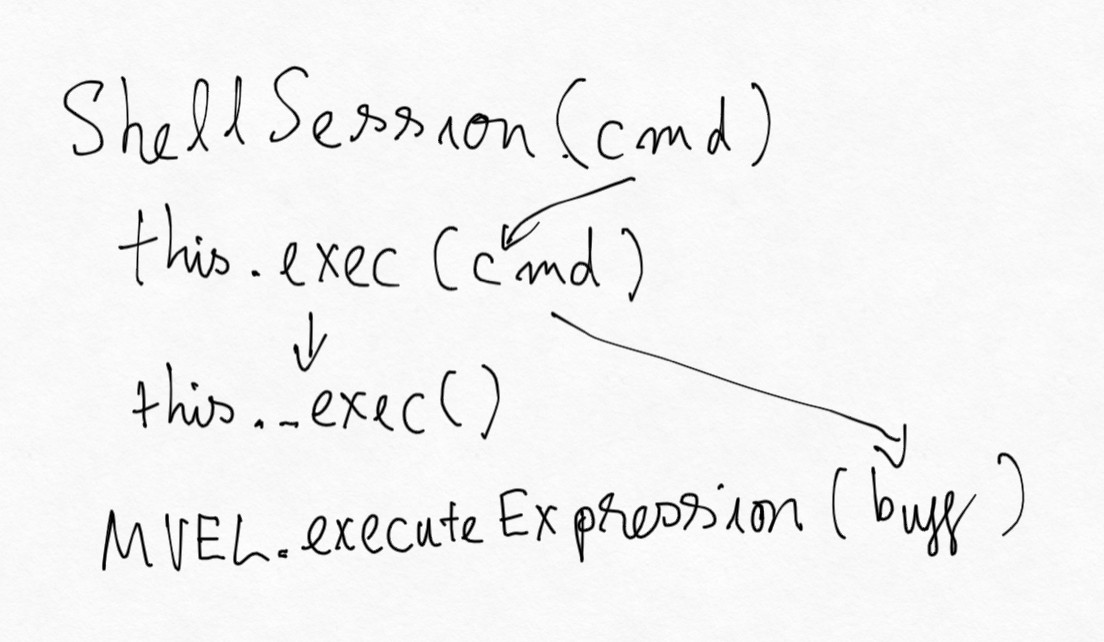 ShellSession(cmd)
this.exec(cmd)
this._exec()
MVEL.executeExpression(buff)